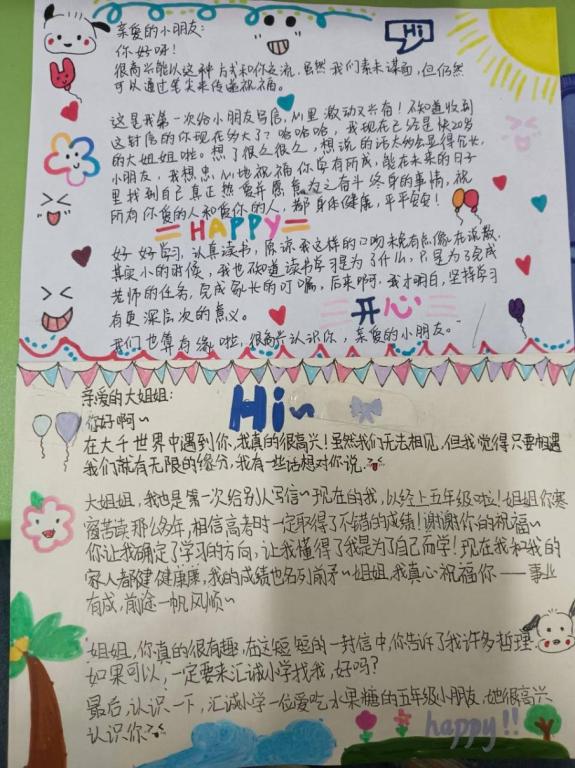 亲爱的小朋友:
Hi
你好呀!
很高兴能以这种方式和你交流,虽然我们素未谋面,但仍然
可以通过笔尖来传递祝福。
这是我第一次给小朋友写信,心里激动又兴奋!不知道收到
这封信的你现在多大了?哈哈哈,我现在已经是快20岁
的大姐姐啦。想了很久很久,想说的话太多会显得冗长,
小朋友,我想衷心地祝福你学有所成,能在未来的日子
里找到自己真正热爱并愿意为之奋斗终身的事情,祝
所有你爱的人和爱你的人,都身体健康,平平安安!
=HAPPY=
好好学习,认真读书,原谅我这样的口吻难免有点像在说教,
其实小的时候,我也不知道读书学习是为了什么,只是为了完成
老师的任务,完成家长的叮嘱,后来啊,我才明白,坚持学习
有更深层次的意义。
开心
我们也算有缘啦,很高兴认识你,亲爱的小朋友。
亲爱的大姐姐:
Hi~
你好啊~
在大千世界中遇到你,我真的很高兴!虽然我们无法相见,但我觉得只要相遇
我们就有无限的缘分,我有一些话想对你说。
大姐姐,我也是第一次给别人写信~现在的我,以经上五年级啦!姐姐你寒
窗苦读那么多年,相信高考时一定取得了不错的成绩!谢谢你的祝福~
你让我确定了学习的方向,让我懂得了我是为了自己而学!现在我和我的
家人都健健康康,我的成绩也名列前矛~姐姐,我真心祝福你——事业
有成,前途一帆风顺~
姐姐,你真的很有趣,在这短短的一封信中,你告诉了我许多哲理
如果可以,一定要来汇诚小学找我,好吗?
最后,认识一下,汇诚小学一位爱吃水果糖的五年级小朋友,她很高兴
认识你
happy!!